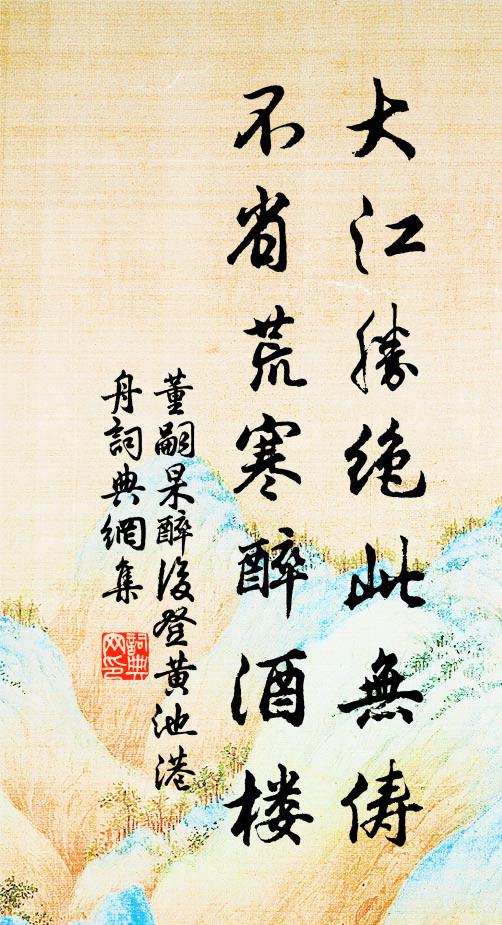 大江勝絶此無儔
不省荒寒醉酒楼
董嗣杲醉後登黄池港
舟詞典網集
詞典